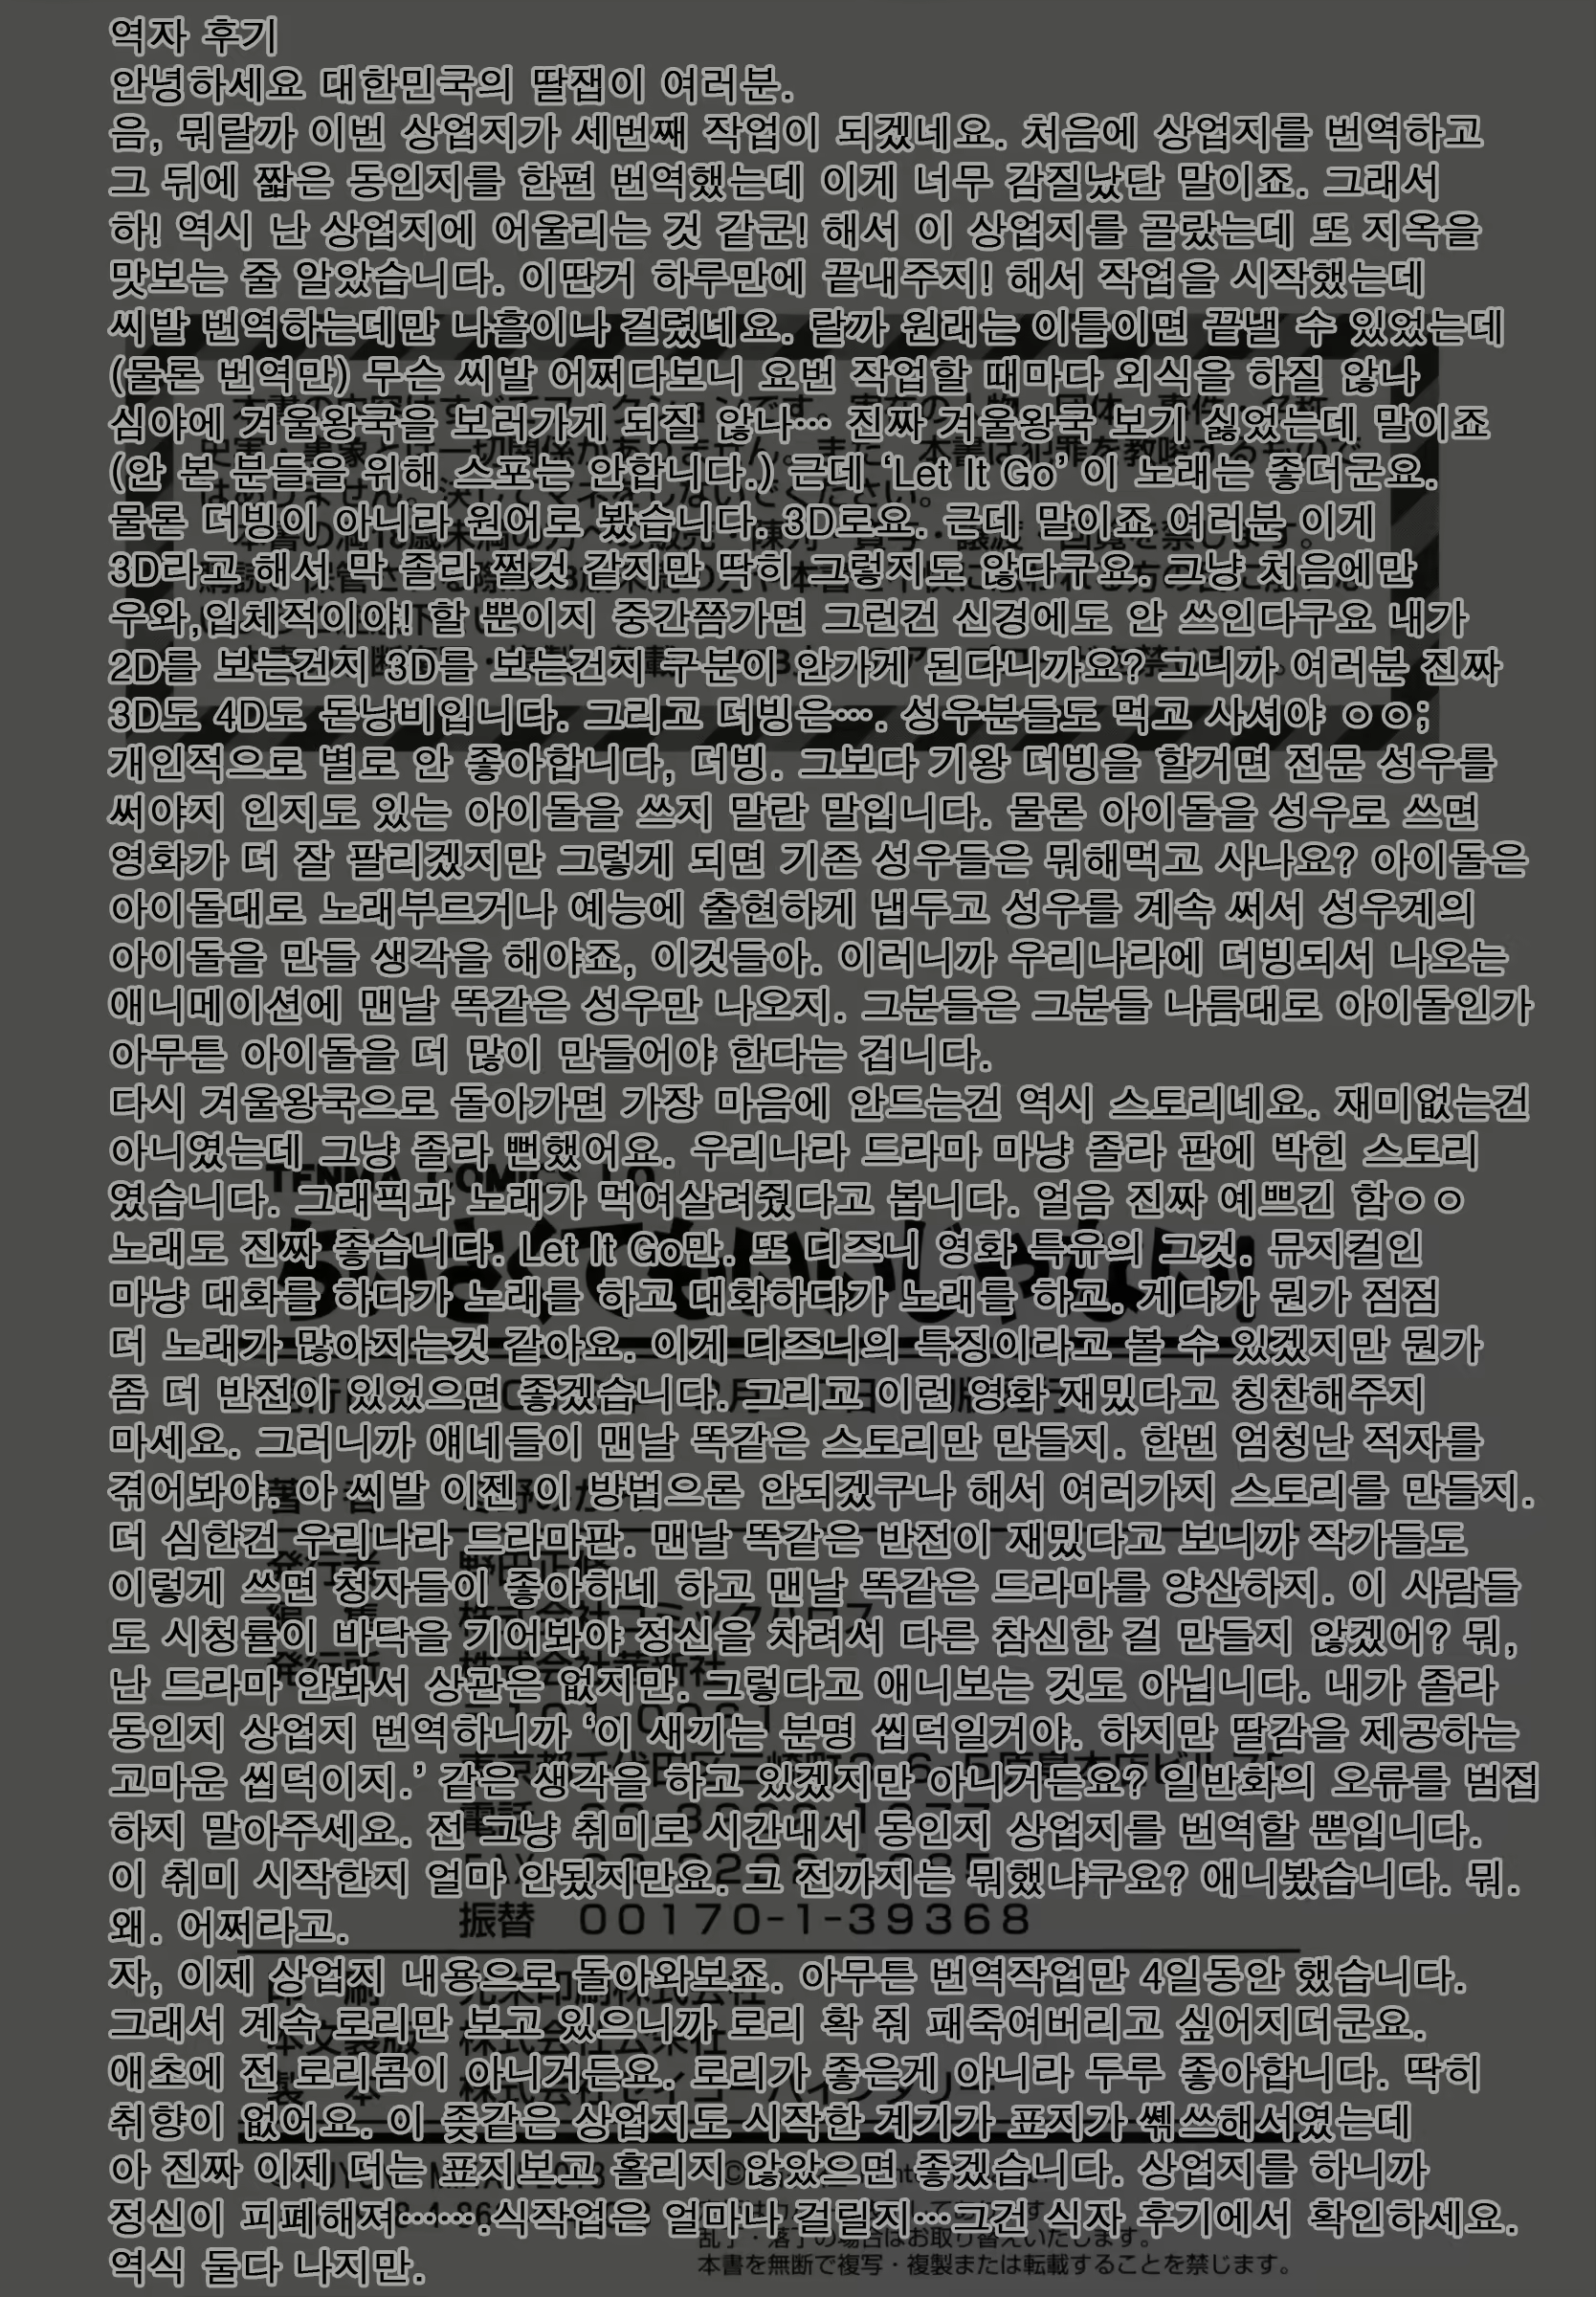 역자 후기
안녕하세요 대한민국의 딸잽이 여러분.
음, 뭐랄까 이번 상업지가 세번째 작업이 되겠네요. 처음에 상업지를 번역하고
그 뒤에 짧은 동인지를 한편 번역했는데 이게 너무 감질났단 말이죠. 그래서
하! 역시 난 상업지에 어울리는 것 같군! 해서 이 상업지를 골랐는데 또 지옥을
맛보는 줄 알았습니다. 이딴거 하루만에 끝내주지! 해서 작업을 시작했는데
씨발 번역하는데만 나흘이나 걸렸네요. 랄까 원래는 이틀이면 끝낼 수 있었는데
(물론 번역만) 무슨 씨발 어쩌다보니 요번 작업할 때마다 외식을 하질 않나
심야에 겨울왕국을 보러가게 되질 않나… 진짜 겨울왕국 보기 싫었는데 말이죠
(안 본 분들을 위해 스포는 안합니다.) 근데 ‘Let It Go’ 이 노래는 좋더군요.
물론 더빙이 아니라 원어로 봤습니다. 3D로요. 근데 말이죠 여러분 이게
3D라고 해서 막 졸라 쩔것 같지만 딱히 그렇지도 않다구요. 그냥 처음에만
우와,입체적이야! 할 뿐이지 중간쯤가면 그런건 신경에도 안 쓰인다구요 내가
2D를 보는건지 3D를 보는건지 구분이 안가게 된다니까요? 그니까 여러분 진짜
3D도 4D도 돈낭비입니다. 그리고 더빙은…. 성우분들도 먹고 사셔야 ㅇㅇ;
개인적으로 별로 안 좋아합니다, 더빙. 그보다 기왕 더빙을 할거면 전문 성우를
써야지 인지도 있는 아이돌을 쓰지 말란 말입니다. 물론 아이돌을 성우로 쓰면
영화가 더 잘 팔리겠지만 그렇게 되면 기존 성우들은 뭐해먹고 사나요? 아이돌은
아이돌대로 노래부르거나 예능에 출현하게 냅두고 성우를 계속 써서 성우계의
아이돌을 만들 생각을 해야죠, 이것들아. 이러니까 우리나라에 더빙되서 나오는
애니메이션에 맨날 똑같은 성우만 나오지. 그분들은 그분들 나름대로 아이돌인가
아무튼 아이돌을 더 많이 만들어야 한다는 겁니다.
다시 겨울왕국으로 돌아가면 가장 마음에 안드는건 역시 스토리네요. 재미없는건
아니였는데 그냥 졸라 뻔했어요. 우리나라 드라마 마냥 졸라 판에 박힌 스토리
였습니다. 그래픽과 노래가 먹여살려줬다고 봅니다. 얼음 진짜 예쁘긴 함ㅇㅇ
노래도 진짜 좋습니다. Let It Go만. 또 디즈니 영화 특유의 그것. 뮤지컬인
마냥 대화를 하다가 노래를 하고 대화하다가 노래를 하고. 게다가 뭔가 점점
더 노래가 많아지는것 같아요. 이게 디즈니의 특징이라고 볼 수 있겠지만 뭔가
좀 더 반전이 있었으면 좋겠습니다. 그리고 이런 영화 재밌다고 칭찬해주지
마세요. 그러니까 얘네들이 맨날 똑같은 스토리만 만들지. 한번 엄청난 적자를
겪어봐야. 아 씨발 이젠 이 방법으론 안되겠구나 해서 여러가지 스토리를 만들지.
더 심한건 우리나라 드라마판. 맨날 똑같은 반전이 재밌다고 보니까 작가들도
이렇게 쓰면 청자들이 좋아하네 하고 맨날 똑같은 드라마를 양산하지. 이 사람들
도 시청률이 바닥을 기어봐야 정신을 차려서 다른 참신한 걸 만들지 않겠어? 뭐,
난 드라마 안봐서 상관은 없지만. 그렇다고 애니보는 것도 아닙니다. 내가 졸라
동인지 상업지 번역하니까 ‘이 새끼는 분명 씹덕일거야. 하지만 딸감을 제공하는
고마운 씹덕이지.’ 같은 생각을 하고 있겠지만 아니거든요? 일반화의 오류를 범접
하지 말아주세요. 전 그냥 취미로 시간내서 동인지 상업지를 번역할 뿐입니다.
이 취미 시작한지 얼마 안됐지만요. 그 전까지는 뭐했냐구요? 애니봤습니다. 뭐.
왜. 어쩌라고.
振替 00170-1-39368
자, 이제 상업지 내용으로 돌아와보죠. 아무튼 번역작업만 4일동안 했습니다.
그래서 계속 로리만 보고 있으니까 로리 확 줘 패죽여버리고 싶어지더군요.
애초에 전 로리콤이 아니거든요. 로리가 좋은게 아니라 두루 좋아합니다. 딱히
취향이 없어요. 이 좆같은 상업지도 시작한 계기가 표지가 쎾쓰해서였는데
아 진짜 이제 더는 표지보고 홀리지 않았으면 좋겠습니다. 상업지를 하니까
정신이 피폐해져…….식작업은 얼마나 걸릴지…그건 식자 후기에서 확인하세요.
역식 둘다 나지만.
乱丁・落丁の場合はお取り替えいたします。
本書を無断で複写・複製または転載することを禁じます。